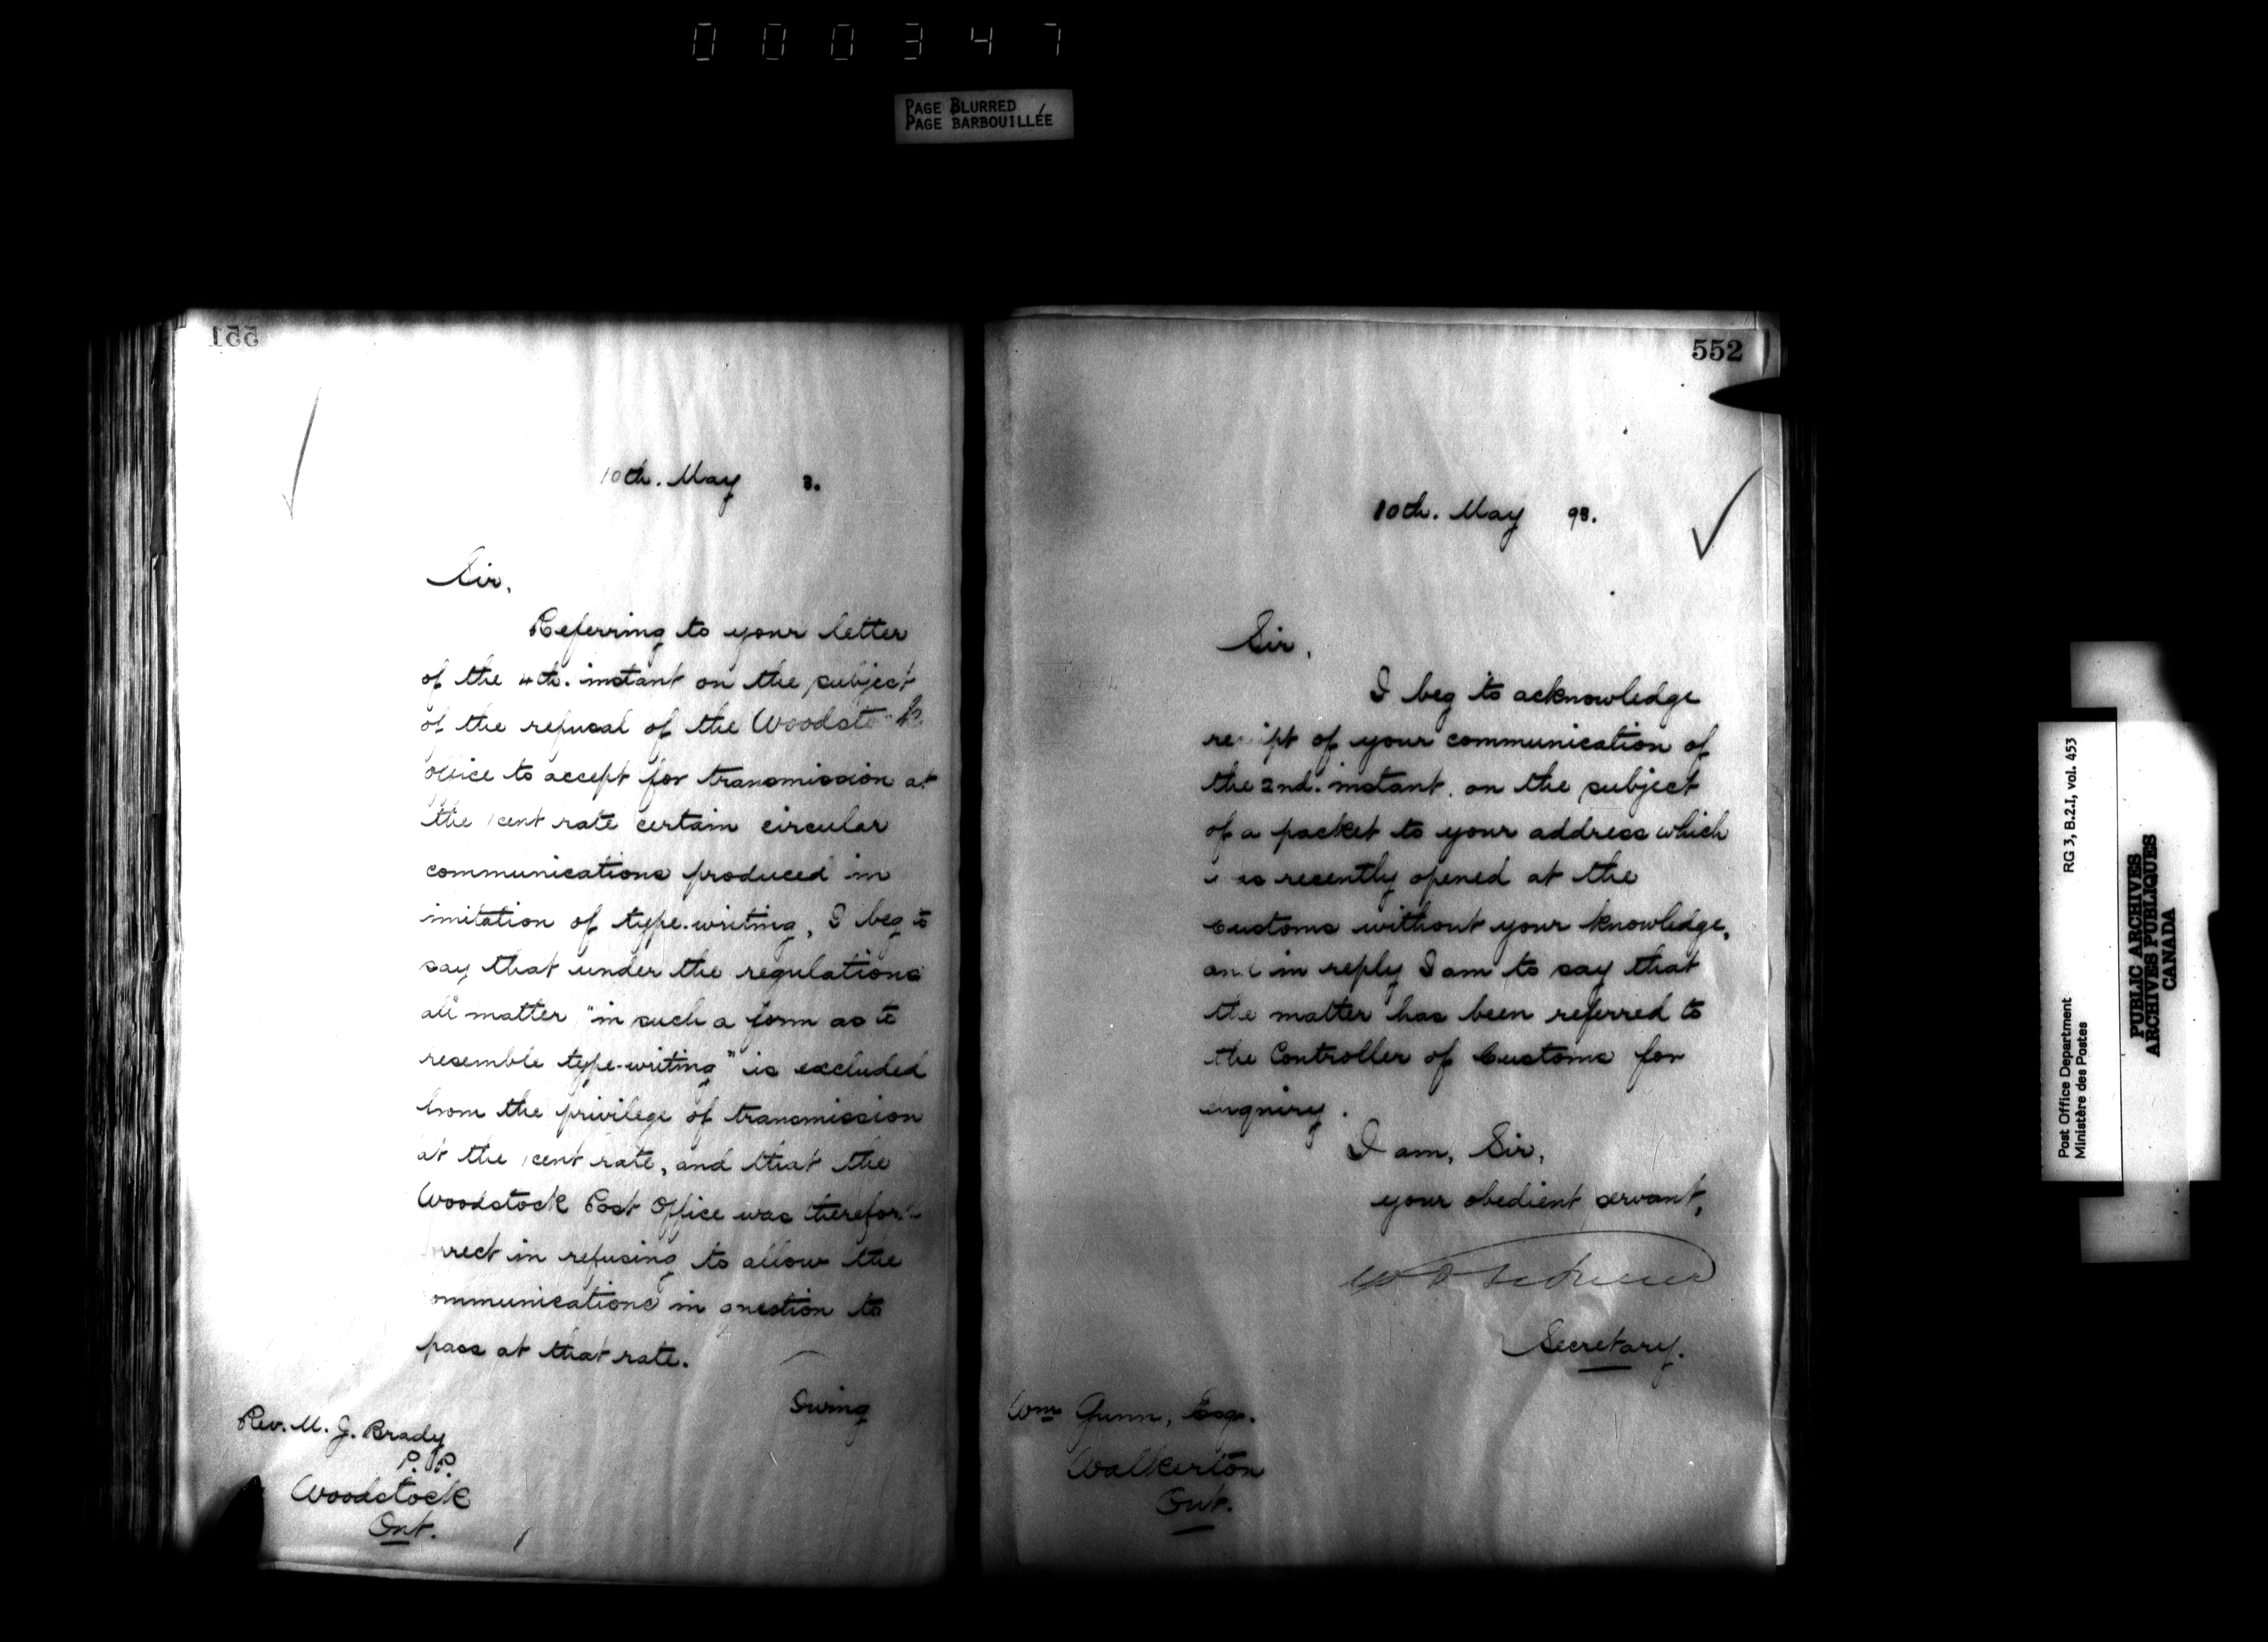 000347
PAGE BLURRED
PAGE BARBOUILLÉE
551
10th. May 3.
Sir,
Referring to your letter
of the 4th. instant on the subject
of the refusal of the Woodstock
Office to accept for transmission at
the 1 cent rate certain circular
communications produced in
imitation of type-writing, I beg to
say that under the regulations
all matter "in such a form as to
resemble type-writing" is excluded
from the privilege of transmission
at the 1 cent rate, and that the
Woodstock Post Office was therefore
orrect in refusing to allow the
ommunications in question to
pass at that rate.
Swing
Rev. M. J. Brady
P.P.
Woodstock
Ont.
552
10th. May 93.
Sir,
I beg to acknowledge
receipt of your communication of
the 2nd. instant. on the subject
of a packet to your address which
was recently opened at the
Customs without your knowledge,
and in reply I am to say that
the matter has been referred to
the Controller of Customs for
enquiry.
I am, Sir,
your obedient servant,
Secretary.
Wm Gunn, Esq.
Walkerton
Ont.
Post Office Department RG 3, B.2.I, vol. 453
Ministère des Postes
PUBLIC ARCHIVES
ARCHIVES PUBLIQUES
CANADA